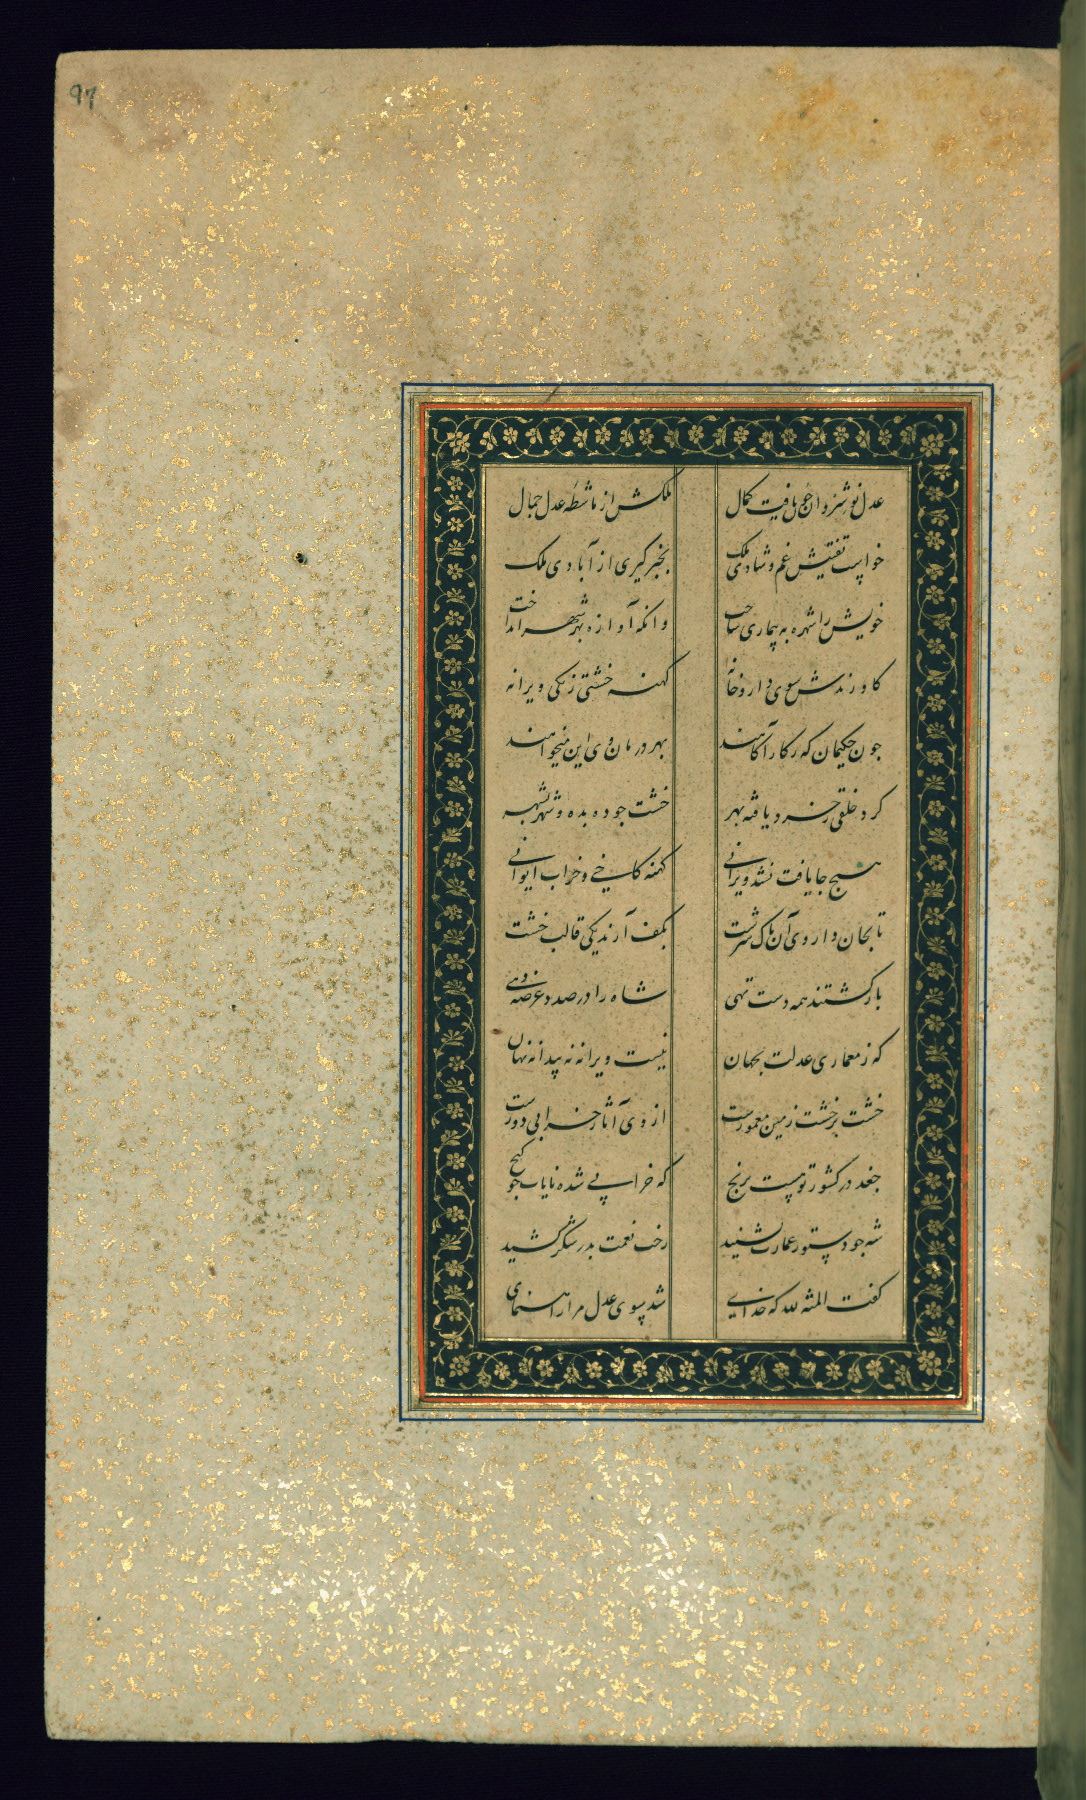 97
عدل نوشیروان چون یافت کمال
ملکش از ماشطه عدل جمال
خواست تفتیش غم و شادی ملک
خبر گیری از آبادی ملک
خویش را شهره به بیماری ساخت
وانکه آوازه بهر شهر انداخت
کاورندش سوی دارو خانه
کهنه خشتی ز یکی ویرانه
جون حکیمان که ز کار آکاهند
بهر درمان وی این میخواهند
کرد خلقی ز خرد یافته بهر
خشت جو ده بده و شهر بشهر
هیچ جا یافت نشد ویرانی
کهنه کاخی و خراب ایوانی
تا بجان داروی آن پاک سرشت
بکف آرند یکی قالب خشت
باز کشتند همه دست تهی
شاه را در صدد عرضه دهی
که ز معماری عدلت بجهان
نیست ویرانه نه پیدا نه نهان
خشت بر خشت زمین معمورست
از وی آثار خرابی دورست
جغد در کشور تو هست برنج
که خرابی شده نایاب جو کنج
شه جو دستور عمارت بشنید
رخت نعمت بدر شکر کشید
کفت المنة لله که خدای
شد بسوی عدل مرا راهنمای